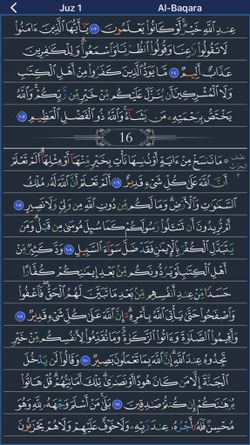 Juz 1 Al-Baqara
عِندِ ٱللَّهِ خَيْرٌ ۖ لَّوْ كَانُوا۟ يَعْلَمُونَ ١٠٣ يَـٰٓأَيُّهَا ٱلَّذِينَ ءَامَنُوا۟
لَا تَقُولُوا۟ رَٰعِنَا وَقُولُوا۟ ٱنظُرْنَا وَٱسْمَعُوا۟ ۗ وَلِلْكَـٰفِرِينَ
عَذَابٌ أَلِيمٌ ١٠٤ مَّا يَوَدُّ ٱلَّذِينَ كَفَرُوا۟ مِنْ أَهْلِ ٱلْكِتَـٰبِ
وَلَا ٱلْمُشْرِكِينَ أَن يُنَزَّلَ عَلَيْكُم مِّنْ خَيْرٍ مِّن رَّبِّكُمْ ۗ وَٱللَّهُ
يَخْتَصُّ بِرَحْمَتِهِۦ مَن يَشَآءُ ۚ وَٱللَّهُ ذُو ٱلْفَضْلِ ٱلْعَظِيمِ ١٠٥
16
مَا نَنسَخْ مِنْ ءَايَةٍ أَوْ نُنسِهَا نَأْتِ بِخَيْرٍ مِّنْهَآ أَوْ مِثْلِهَآ ۗ أَلَمْ تَعْلَمْ
أَنَّ ٱللَّهَ عَلَىٰ كُلِّ شَىْءٍ قَدِيرٌ ١٠٦ أَلَمْ تَعْلَمْ أَنَّ ٱللَّهَ لَهُۥ مُلْكُ
ٱلسَّمَـٰوَٰتِ وَٱلْأَرْضِ ۗ وَمَا لَكُم مِّن دُونِ ٱللَّهِ مِن وَلِىٍّ وَلَا نَصِيرٍ ١٠٧
أَمْ تُرِيدُونَ أَن تَسْـَٔلُوا۟ رَسُولَكُمْ كَمَا سُئِلَ مُوسَىٰ مِن قَبْلُ ۗ وَمَن
يَتَبَدَّلِ ٱلْكُفْرَ بِٱلْإِيمَـٰنِ فَقَدْ ضَلَّ سَوَآءَ ٱلسَّبِيلِ ١٠٨ وَدَّ كَثِيرٌ مِّنْ
أَهْلِ ٱلْكِتَـٰبِ لَوْ يَرُدُّونَكُم مِّنۢ بَعْدِ إِيمَـٰنِكُمْ كُفَّارًا
حَسَدًا مِّنْ عِندِ أَنفُسِهِم مِّنۢ بَعْدِ مَا تَبَيَّنَ لَهُمُ ٱلْحَقُّ ۖ فَٱعْفُوا۟
وَٱصْفَحُوا۟ حَتَّىٰ يَأْتِىَ ٱللَّهُ بِأَمْرِهِۦٓ ۗ إِنَّ ٱللَّهَ عَلَىٰ كُلِّ شَىْءٍ قَدِيرٌ ١٠٩
وَأَقِيمُوا۟ ٱلصَّلَوٰةَ وَءَاتُوا۟ ٱلزَّكَوٰةَ ۚ وَمَا تُقَدِّمُوا۟ لِأَنفُسِكُم مِّنْ خَيْرٍ
تَجِدُوهُ عِندَ ٱللَّهِ ۗ إِنَّ ٱللَّهَ بِمَا تَعْمَلُونَ بَصِيرٌ ١١٠ وَقَالُوا۟ لَن يَدْخُلَ
ٱلْجَنَّةَ إِلَّا مَن كَانَ هُودًا أَوْ نَصَـٰرَىٰ ۗ تِلْكَ أَمَانِيُّهُمْ ۗ قُلْ هَاتُوا۟
بُرْهَـٰنَكُمْ إِن كُنتُمْ صَـٰدِقِينَ ١١١ بَلَىٰ مَنْ أَسْلَمَ وَجْهَهُۥ لِلَّهِ وَهُوَ
مُحْسِنٌ فَلَهُۥٓ أَجْرُهُۥ عِندَ رَبِّهِۦ وَلَا خَوْفٌ عَلَيْهِمْ وَلَا هُمْ يَحْزَنُونَ